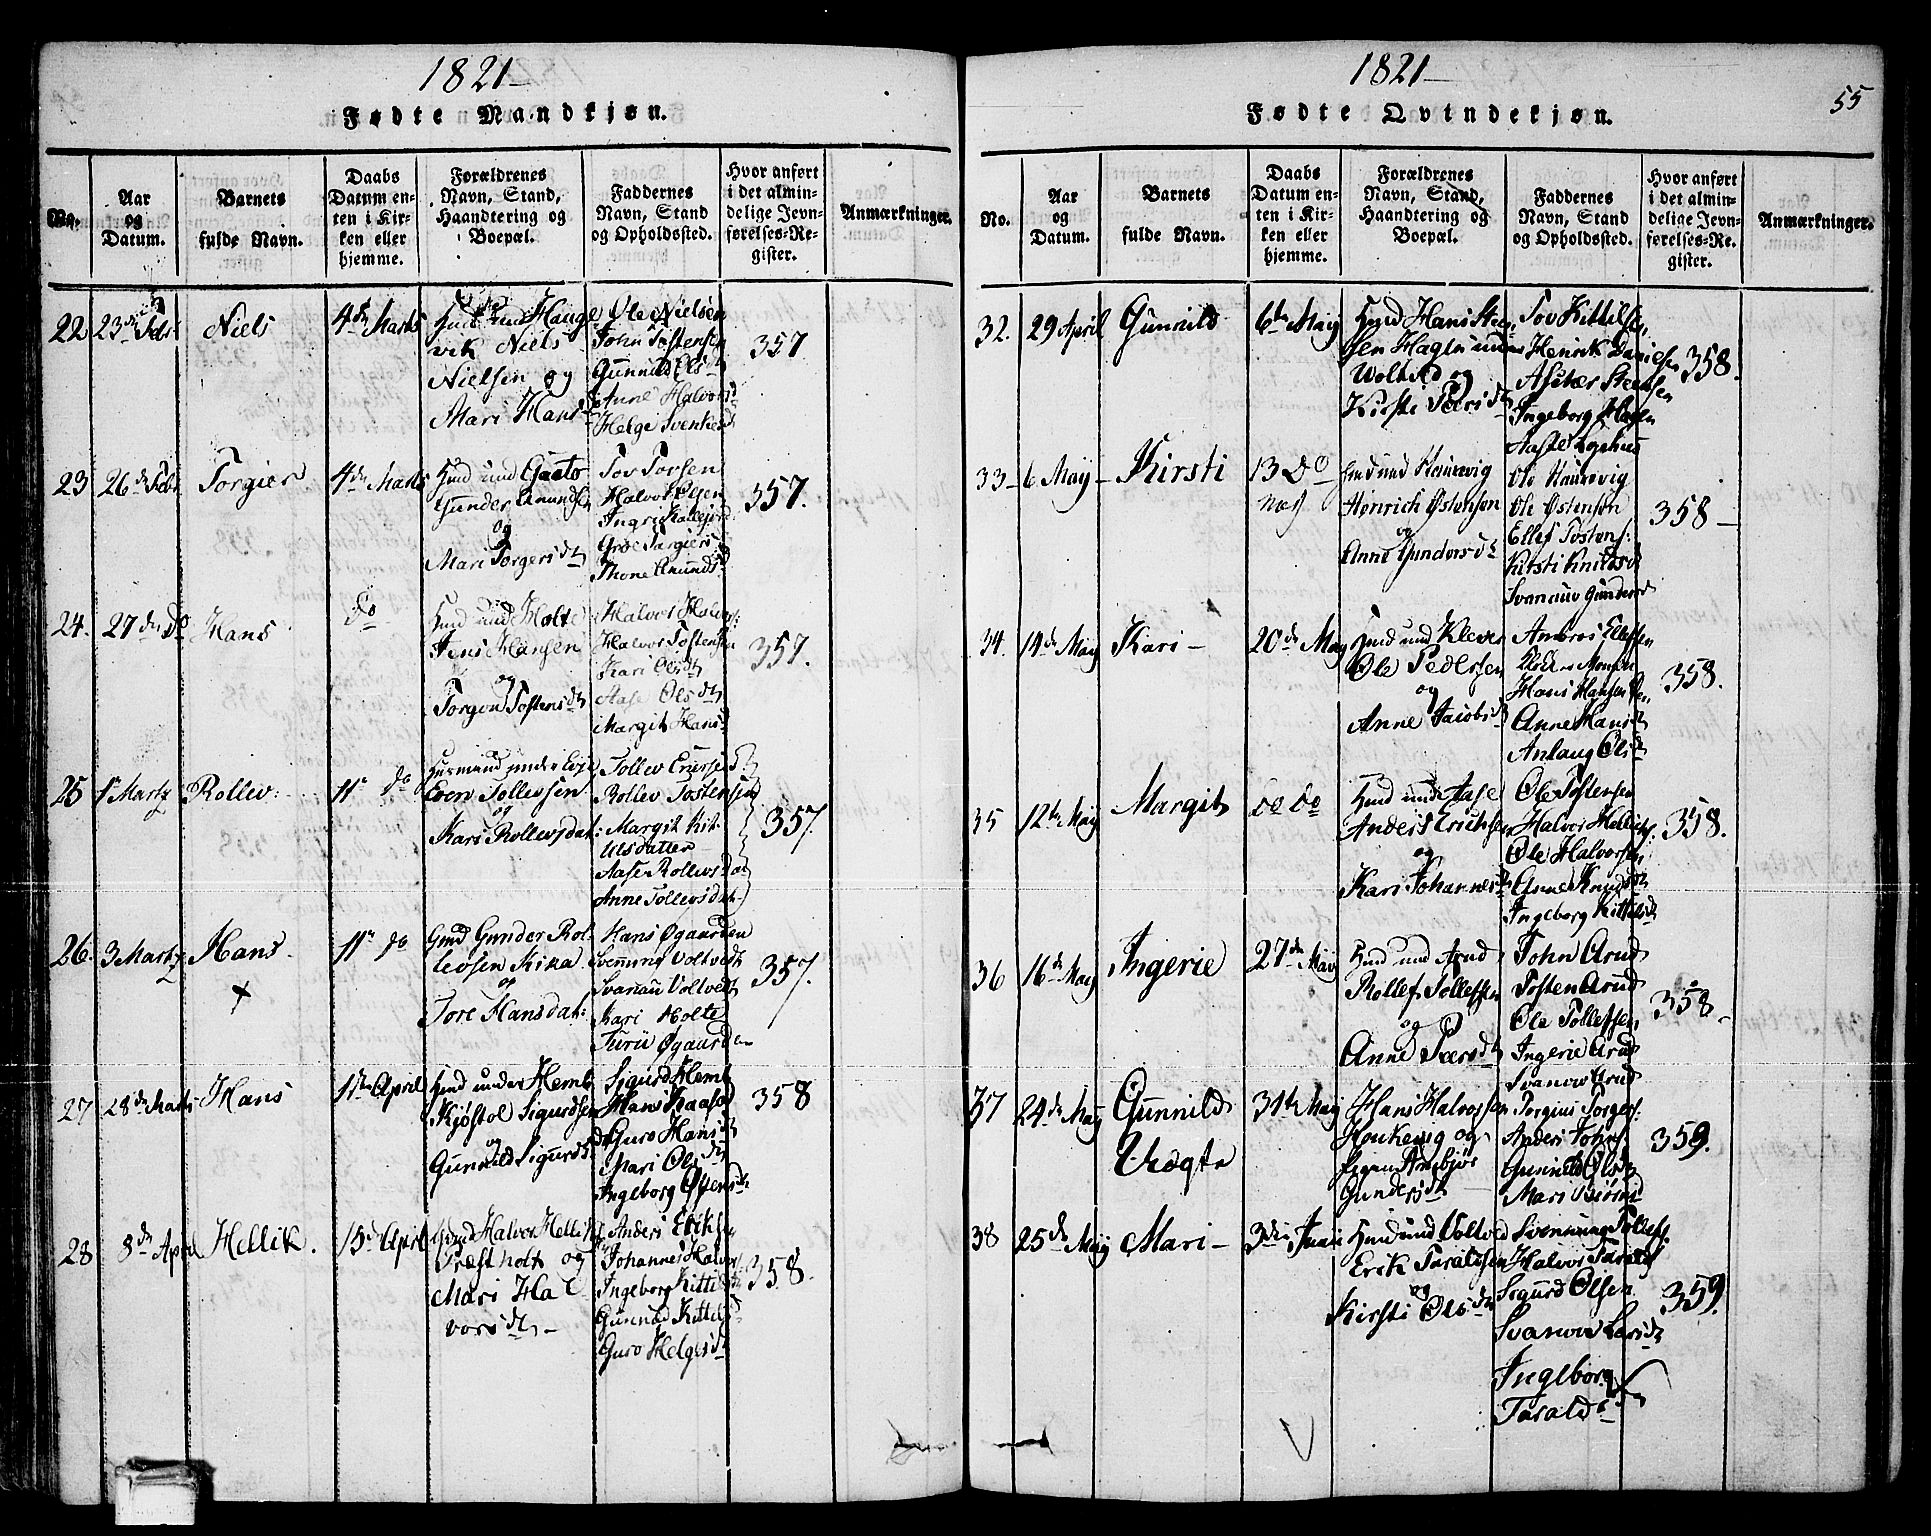 1821
Fødte Mandkjøn.
No.
Aar
og
Datum.
Barnets
fulde Navn.
Daabs
Datum en-
ten i Kir-
ken eller
hjemme.
Forældrenes
Navn, Stand,
Haandtering og
Boepæl.
Faddernes
Navn, Stand
og Opholdssted.
Hvor anført
i det almin-
delige Jevn-
førelses-Re-
gister.
Anmærkninger.
22
23de Febr
Niels
4de Marts
Niels
Nielsen og
Mari Hansd
Ole Nielsen
John Tostensen
Gunnild Olsd
Anne Halvorsd
Helge Svenkesd
357
23
26de Febr
Torgier
4de Marts
Hmd und Gaato
Gunder Amundsen
og
Mari Torgersdt
Tov Torsen
Halvor Olsen
Ingri
Groe Torgiersd
Thone Amundsd
357.
24.
27de do
Hans
do
Hmd und Holte
Jens Hansen
og
Torgon Tostensdt
Halvor Halvors:
Halvor Tostensen
Kari Olsdt
Aase Olsdt
Margit Hansd
357.
25
1 Martz
Rollev:
11te do
Huusmand under
Even Tollevsen
og
Kari Rollevsdat:
Tollev
Rollev Tostensen
Margit Kit-
tilsdatter
Aase Rollevsdat
Anne Tollevsdat
357.
26.
3 Martz
Hans.
11te do
Gmd Gunder Rol-
levsen Kika
og
Tore Hansdat:
Hans Øgaarden
Svennung Voltvedt
Svanau Voltvedt
Kari Holte
Turü Øgaarden
357.
27
28de Marts
Hans
1ste April
Hmd under Hemb
Kjøstol Sigurdsen
og
Gunnild Sigurdsd
Sigurd Hemb
Hans Kaasa
Guro Hansdt
Mari Olsdt
Ingeborg Østensdt
358
28
8de April
Hellik.
15de April
Gmd Halvor Hellik
Præstholt og
Mari Hal
vorsdt
Anders Eriksen
Johannes Halvors
Ingeborg Kittilsdt
Gunnild Kittilsd
Guro Helgesdt
358.
1821
55
Fødte Qvindekjøn.
No.
Aar
og
Datum.
Barnets
fulde Navn.
Daabs
Datum en-
ten i Kir-
ken eller
hjemme.
Forældrenes
Navn, Stand,
Haandtering og
Boepæl.
Faddernes
Navn, Stand
og Opholdssted.
Hvor anført
i det almin-
delige Jevn-
førelses-Re-
gister.
Anmærkninger.
32.
29 April
Gunnild
6te May
Hmd Hans Steen-
sen Hagen under
Woltved og
Kirsti Peersdt
Tov Kittilsen
Henrik Danielsen
Asther Steensen
Ingeborg Hagen
358.
33
6 May
Kirsti
13 do
Hmd und
Henrich Østensen
og
Anne Gundersdt
Ole
Ole Østensen
Ellef Tostens:
Kirsti Knudsd
Svanaue Gundersd
358
34.
14de May
Kari
20de May
Hmd und Klever
Ole Pedersen
og
Anne Jacobsdt
Ambros Ellefsen
Hans Hansen
Anne Hansdt
Anlaug Olsdt
358.
35
12te May
Margit
do do
Hmd under Aase
Anders Erichsen
og
Kari Johannesdt
Ole Tostensen
Halvor Hellichs:
Ole Halvorsen
Anne Knudsdt
Ingeborg Kittelsdt
358.
36
16de May
Ingerie
27de May
Hmd und Arud
Rollef Tollefsen
og
Anne Peersdt
John Arud
Tosten Arud
Ole Tollefsen
Ingerie Arud
Svanow Arud
358
37
24de May
Gunnild
31te May
Hans Halvorsen
og
Gundersdt
Torgius Torgers:
Anders Johns:
Gunnild Olsdt
Mari Biørnsd
359.
38
25de May
Mari
3die Junii
Hmd und Voltved
Erik Taraldsen
og
Kirsti Olsdt
Svennung Tollefs.
Halvor Taralds
Sigurd Olsen
Svanow Larsdt
Ingeborg
Taraldsd
359.